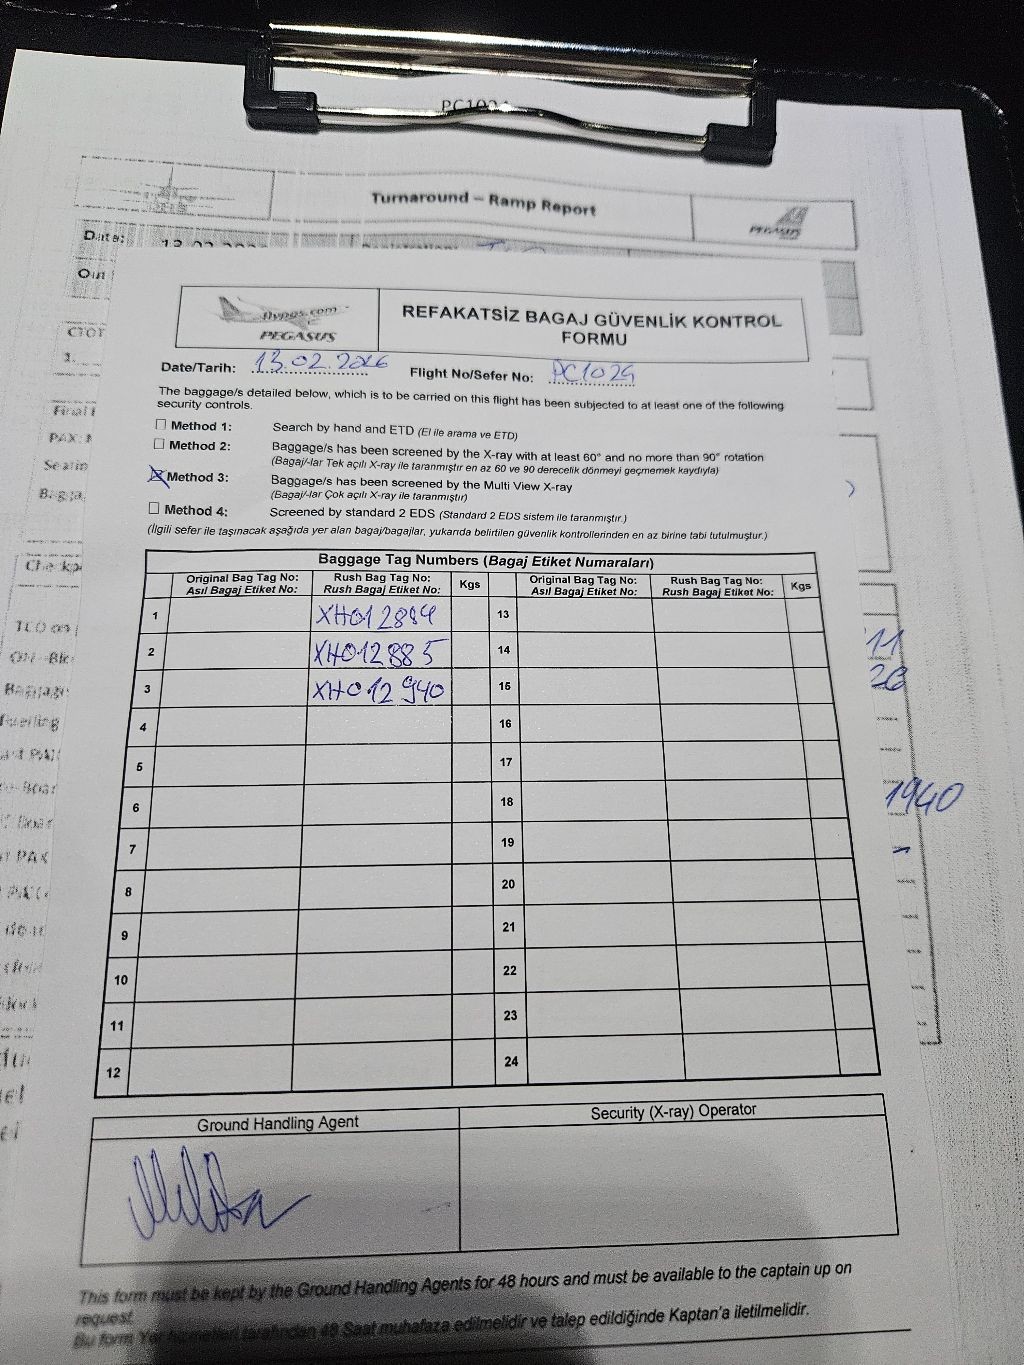 Turnaround – Ramp Report
PEGASUS
Date:
flypgs.com
PEGASUS
REFAKATSİZ BAGAJ GÜVENLİK KONTROL
FORMU
Date/Tarih: 13.02.2026 Flight No/Sefer No: PC1029
The baggage/s detailed below, which is to be carried on this flight has been subjected to at least one of the following
security controls.
Method 1: Search by hand and ETD (El ile arama ve ETD)
Method 2: Baggage/s has been screened by the X-ray with at least 60° and no more than 90° rotation
(Bagaj/-lar Tek açılı X-ray ile taranmıştır en az 60 ve 90 derecelik dönmeyi geçmemek kaydıyla)
Method 3: Baggage/s has been screened by the Multi View X-ray
(Bagaj/-lar Çok açılı X-ray ile taranmıştır)
Method 4: Screened by standard 2 EDS (Standard 2 EDS sistem ile taranmıştır.)
(İlgili sefer ile taşınacak aşağıda yer alan bagaj/bagajlar, yukarıda belirtilen güvenlik kontrollerinden en az birine tabi tutulmuştur.)
Baggage Tag Numbers (Bagaj Etiket Numaraları)
Original Bag Tag No: Rush Bag Tag No: Kgs Original Bag Tag No: Rush Bag Tag No: Kgs
Asıl Bagaj Etiket No: Rush Bagaj Etiket No: Asıl Bagaj Etiket No: Rush Bagaj Etiket No:
1 XH012894 13
2 XH012885 14
3 XH012940 15
4 16
5 17
6 18
7 19
8 20
9 21
10 22
11 23
12 24
11
26
1940
Ground Handling Agent Security (X-ray) Operator
This form must be kept by the Ground Handling Agents for 48 hours and must be available to the captain up on
request.
Bu form Yer hizmetleri tarafından 48 Saat muhafaza edilmelidir ve talep edildiğinde Kaptan'a iletilmelidir.